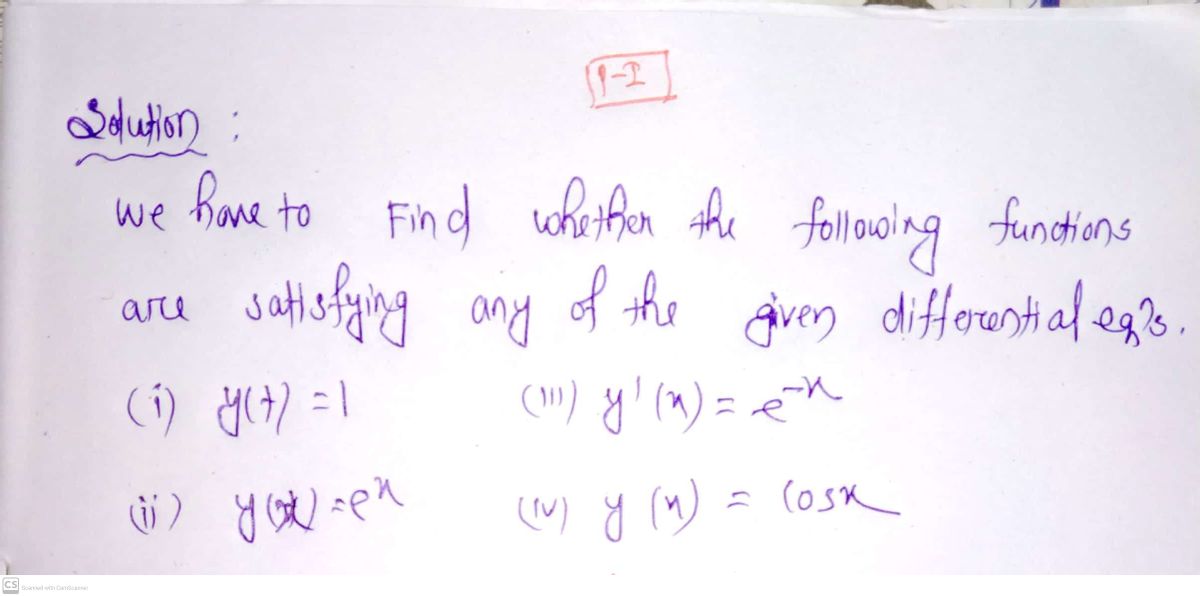 P-I
Solution :
We have to Find whether the following functions
are satisfying any of the given differential eqns.
(i) y(t) = 1 (iii) y'(x) = e^-x
(ii) y(x) = e^x (iv) y (x) = cosx
CS Scanned with CamScanner